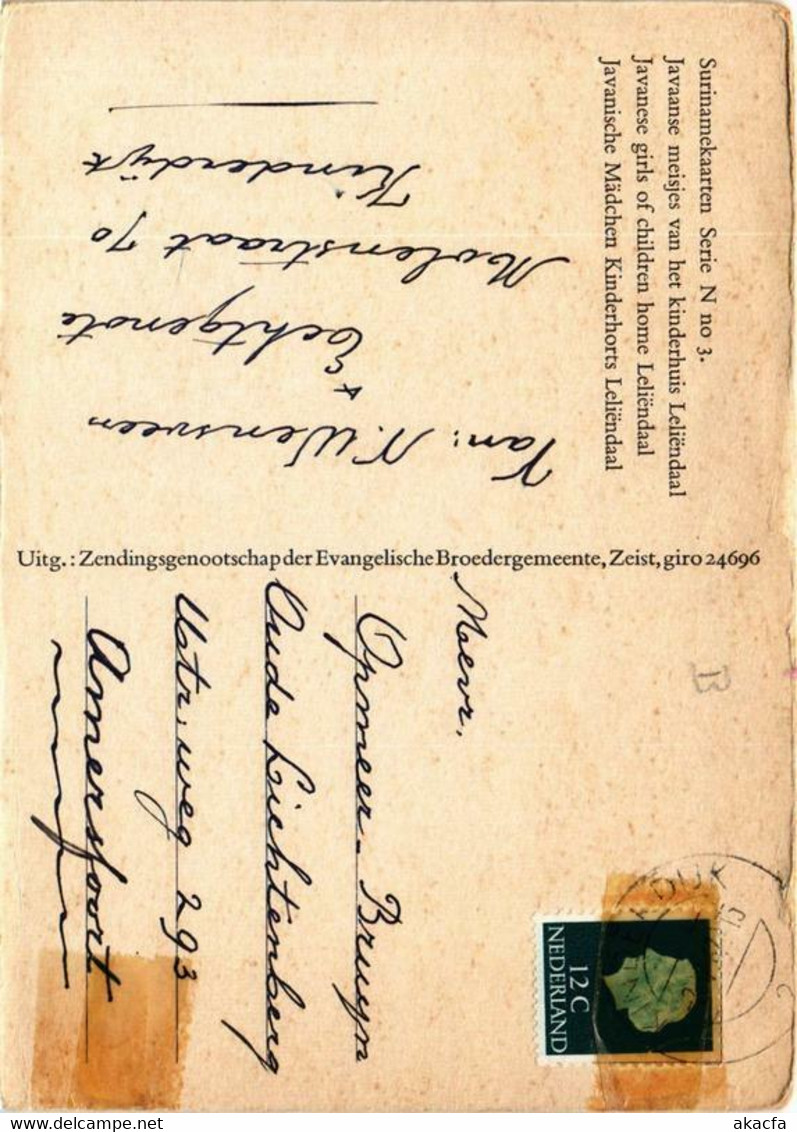 Surinamekaarten Serie N no 3.
Javaanse meisjes van het kinderhuis Leliëndaal
Javanese girls of children home Leliëndaal
Javanische Mädchen Kinderhorts Leliëndaal
Van: N. Wensveen
+ Echtgenote
Molenstraat 70
Kinderdijk
Uitg.: Zendingsgenootschap der Evangelische Broedergemeente, Zeist, giro 24696
Mevr.
Opmeer-Bruyn
Oude Lichtenberg
Utr. weg 293
Amersfoort
B
12 C
NEDERLAND
akacfa
delcampe.net